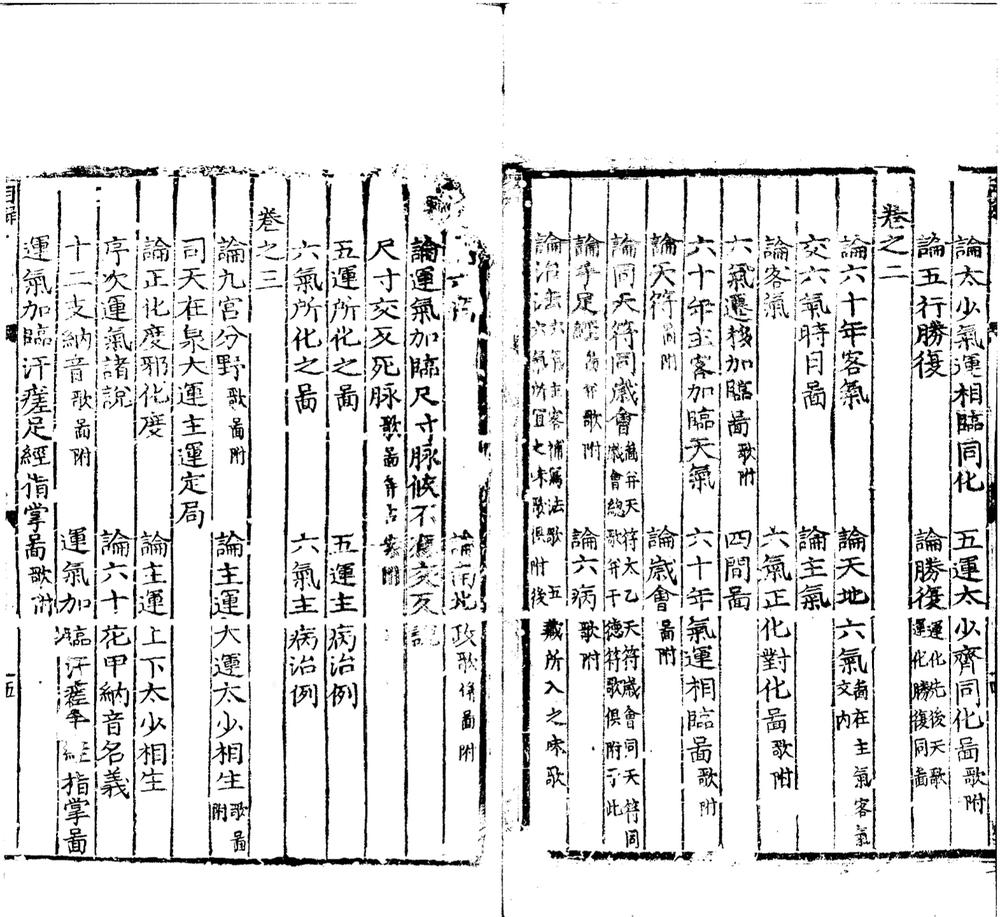 論太少氣運相臨同化　五運太少齊同化啚歌附
論五行勝復　論勝復運化先後天歌運化勝復同啚
卷之二
論六十年客氣　論天地六氣啚在主氣客氣文內
交六氣時日啚　論主氣
論客氣　六氣正化對化啚歌附
六氣遷移加臨啚歌附　四間啚
六十年主客加臨天氣　六十年氣運相臨啚歌附
論天符啚附　論歲會啚附
論同天符同歲會啚并天符太乙天符歲會同天符同歲會總歌并干德符歌俱附于此
論手足經歌附　論六病歌附
論治法六氣主客補瀉法歌五六氣所宜之味歌俱附後藏所入之味歌
論南北政歌併啚附
論運氣加臨尺寸脉候不應交反說
尺寸交反死脉歌啚并占附
五運所化之啚　五運主病治例
六氣所化之啚　六氣主病治例
卷之三
論九宮分野歌啚附　論主運大運太少相生歌啚附
司天在泉大運主運定局
論正化度邪化度　論主運上下太少相生
序次運氣諸說　論六十花甲納音名義
十二支納音歌啚附　運氣加臨汗瘥手經指掌啚
運氣加臨汗瘥足經指掌啚歌附